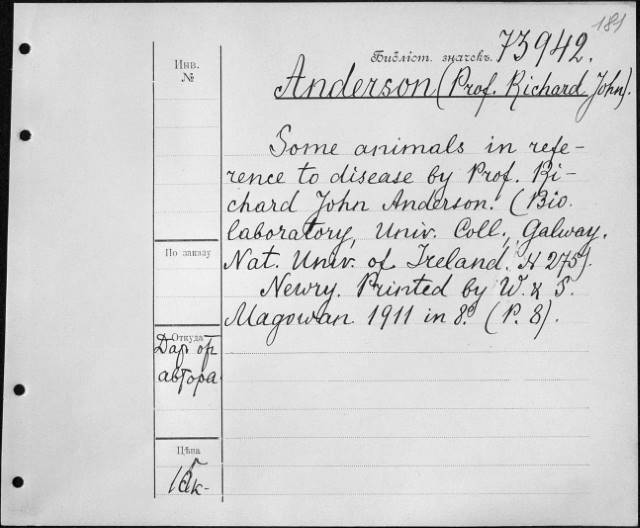 181
Библіот. значекъ. 73942.
Инв.
№
Anderson (Prof. Richard John).
Some animals in refe-
rence to disease by Prof. Ri-
chard John Anderson. (Bio.
laboratory, Univ. Coll., Galway.
По заказу
Nat. Univ. of Ireland. N 275).
Newry. Printed by W. & S.
Magowan 1911 in 8º. (P. 8).
Откуда
Дар от
автора
Цѣна
к-